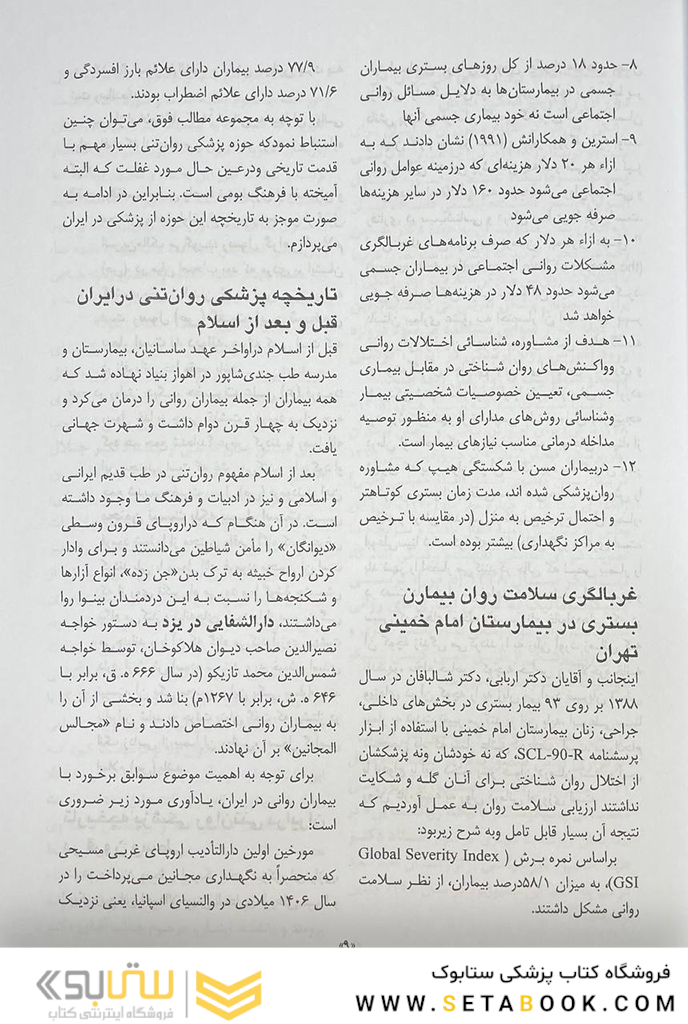 ۸- حدود ۱۸ درصد از کل روزهای بستری بیماران
جسمی در بیمارستان‌ها به دلایل مسائل روانی
اجتماعی است نه خود بیماری جسمی آنها
۹- استرین و همکارانش (۱۹۹۱) نشان دادند که به
ازاء هر ۲۰ دلار هزینه‌ای که درزمینه عوامل روانی
اجتماعی می‌شود حدود ۱۶۰ دلار در سایر هزینه‌ها
صرفه جویی می‌شود
۱۰- به ازاء هر دلار که صرف برنامه‌های غربالگری
مشکلات روانی اجتماعی در بیماران جسمی
می‌شود حدود ۴۸ دلار در هزینه‌ها صرفه جویی
خواهد شد
۱۱- هدف از مشاوره، شناسائی اختلالات روانی
وواکنش‌های روان شناختی در مقابل بیماری
جسمی، تعیین خصوصیات شخصیتی بیمار
وشناسائی روش‌های مدارای او به منظور توصیه
مداخله درمانی مناسب نیازهای بیمار است.
۱۲- دربیماران مسن با شکستگی هیپ که مشاوره
روان‌پزشکی شده اند، مدت زمان بستری کوتاهتر
و احتمال ترخیص به منزل (در مقایسه با ترخیص
به مراکز نگهداری) بیشتر بوده است.
غربالگری سلامت روان بیمارن
بستری در بیمارستان امام خمینی
تهران
اینجانب و آقایان دکتر اربابی، دکتر شالبافان در سال
۱۳۸۸ بر روی ۹۳ بیمار بستری در بخش‌های داخلی،
جراحی، زنان بیمارستان امام خمینی با استفاده از ابزار
پرسشنامه SCL-90-R، که نه خودشان ونه پزشکشان
از اختلال روان شناختی برای آنان گله و شکایت
نداشتند ارزیابی سلامت روان به عمل آوردیم که
نتیجه آن بسیار قابل تامل وبه شرح زیربود:
براساس نمره برش ( Global Severity Index
GSI)، به میزان ۵۸/۱درصد بیماران، از نظر سلامت
روانی مشکل داشتند.
۷۷/۹ درصد بیماران دارای علائم بارز افسردگی و
۷۱/۶ درصد دارای علائم اضطراب بودند.
با توجه به مجموعه مطالب فوق، می‌توان چنین
استنباط نمودکه حوزه پزشکی روان‌تنی بسیار مهم با
قدمت تاریخی ودرعین حال مورد غفلت که البته
آمیخته با فرهنگ بومی است. بنابراین در ادامه به
صورت موجز به تاریخچه این حوزه از پزشکی در ایران
می‌پردازم.
تاریخچه پزشکی روان‌تنی درایران
قبل و بعد از اسلام
قبل از اسلام دراواخر عهد ساسانیان، بیمارستان و
مدرسه طب جندی‌شاپور در اهواز بنیاد نهاده شد که
همه بیماران از جمله بیماران روانی را درمان می‌کرد و
نزدیک به چهار قرن دوام داشت و شهرت جهانی
یافت.
بعد از اسلام مفهوم روان‌تنی در طب قدیم ایرانی
و اسلامی و نیز در ادبیات و فرهنگ ما وجود داشته
است. در آن هنگام که دراروپای قرون وسطی
«دیوانگان» را مأمن شیاطین می‌دانستند و برای وادار
کردن ارواح خبیثه به ترک بدن«جن زده»، انواع آزارها
و شکنجه‌ها را نسبت به این دردمندان بینوا روا
می‌داشتند، دارالشفایی در یزد به دستور خواجه
نصیرالدین صاحب دیوان هلاکوخان، توسط خواجه
شمس‌الدین محمد تازیکو (در سال ۶۶۶ ه. ق، برابر با
۶۴۶ ه. ش، برابر با ۱۲۶۷م) بنا شد و بخشی از آن را
به بیماران روانی اختصاص دادند و نام «مجالس
المجانین» بر آن نهادند.
برای توجه به اهمیت موضوع سوابق برخورد با
بیماران روانی در ایران، یادآوری مورد زیر ضروری
است:
مورخین اولین دارالتأدیب اروپای غربی مسیحی
که منحصراً به نگهداری مجانین می‌پرداخت را در
سال ۱۴۰۶ میلادی در والنسیای اسپانیا، یعنی نزدیک
«۹»
فروشگاه کتاب پزشکی ستابوک
WWW.SETABOOK.COM
ستابوک
فروشگاه اینترنتی کتاب